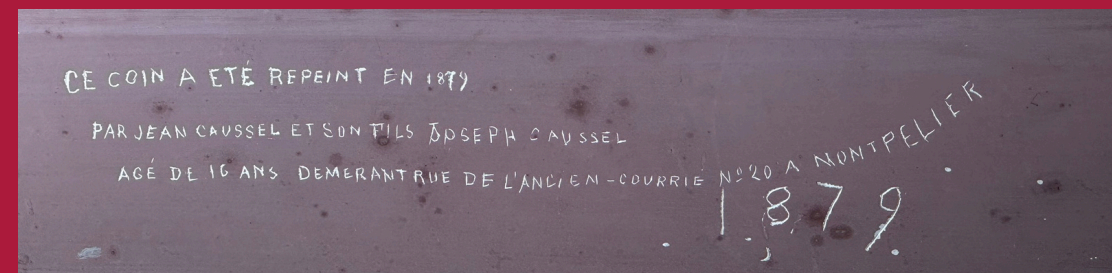 CE COIN A ETÉ REPEINT EN 1879
PAR JEAN CAUSSEL ET SON FILS JOSEPH CAUSSEL
AGÉ DE 16 ANS DEMERANT RUE DE L'ANCIEN-COURRIE Nº 20 A MONTPELIER
1879